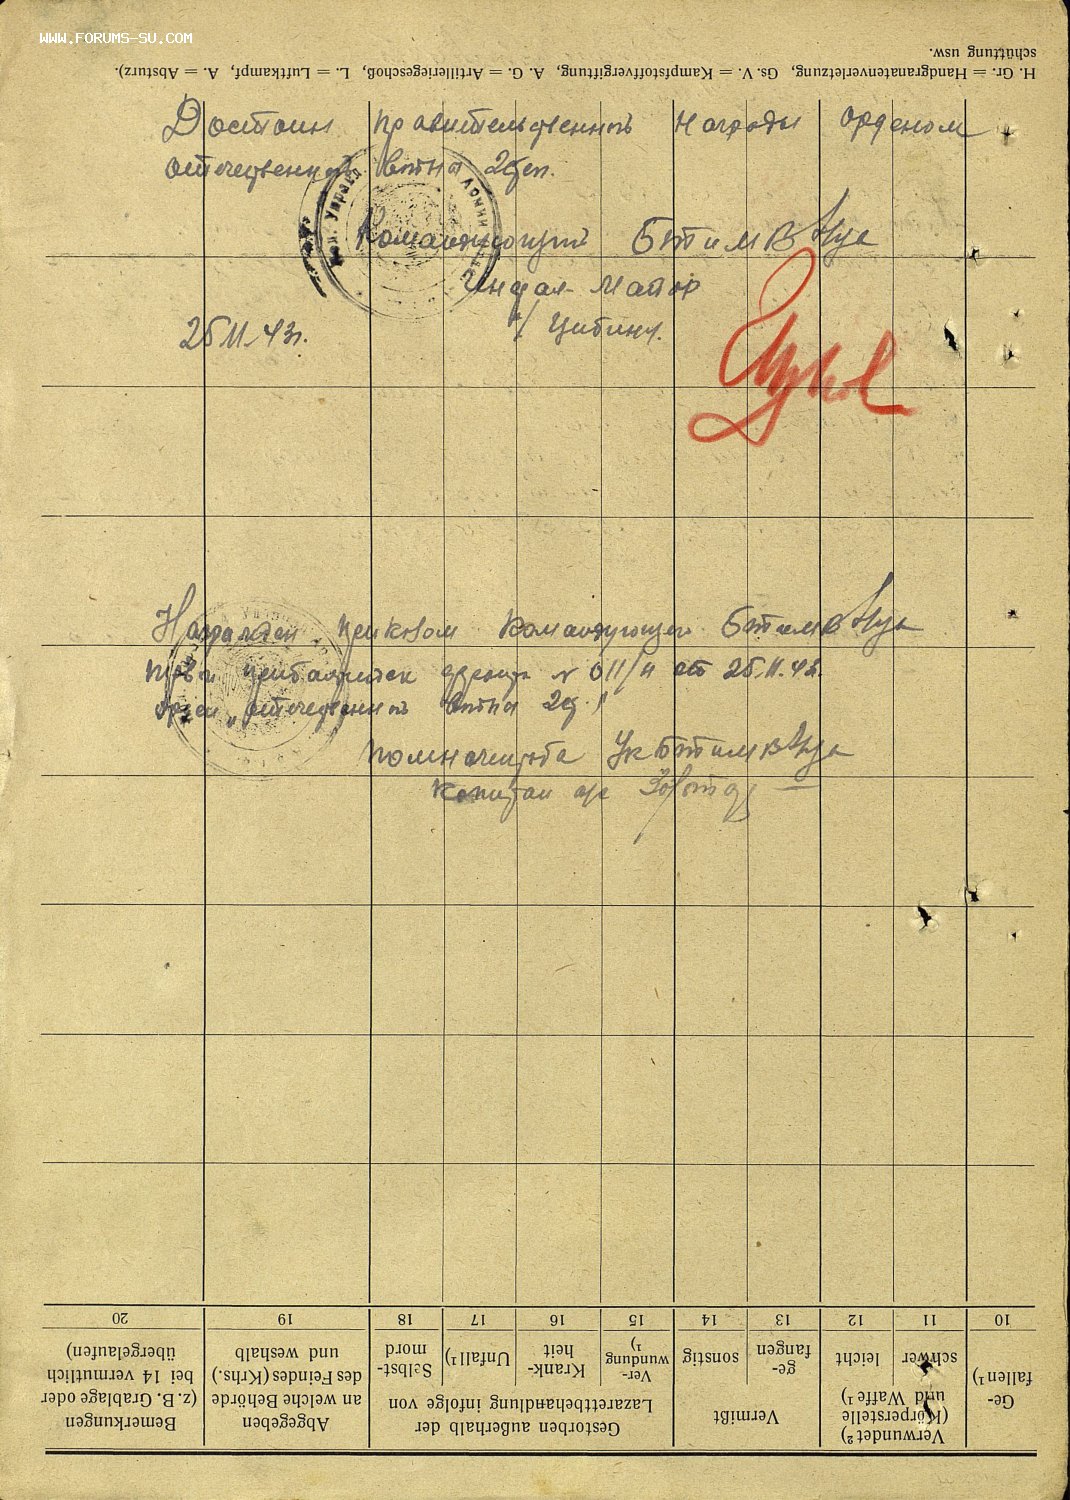 WWW.FORUMS-SU.COM
H. Gr. = Handgranatenverletzung, Gs. V. = Kampfstoffvergiftung, A. G. = Artilleriegeschoß, L. = Luftkampf, A. = Absturz).
schüttung usw.
Достоин правительственной награды орденом
отечественной войны 2 степ.
Командующий БТ и МВ
майор
25.11.43г.
Награжден приказом командующего БТ и МВ
фронта № 011/н от 25.11.43.
отечественной войны 2
БТ и МВ
капитан
10 11 12 13 14 15 16 17 18 19 20
Ge-
fallen¹)
Verwundet²)
(Körperstelle
und Waffe¹)
schwer
leicht
Vermißt
ge-
fangen
sonstig
Gestorben außerhalb der
Lazarettbehandlung infolge von
Ver-
wundung
¹)
Krank-
heit
Unfall¹)
Selbst-
mord
Abgegeben
an welche Behörde
des Feindes (Krhs.)
und weshalb
Bemerkungen
(z. B. Grablage oder
bei 14 vermutlich
übergelaufen)